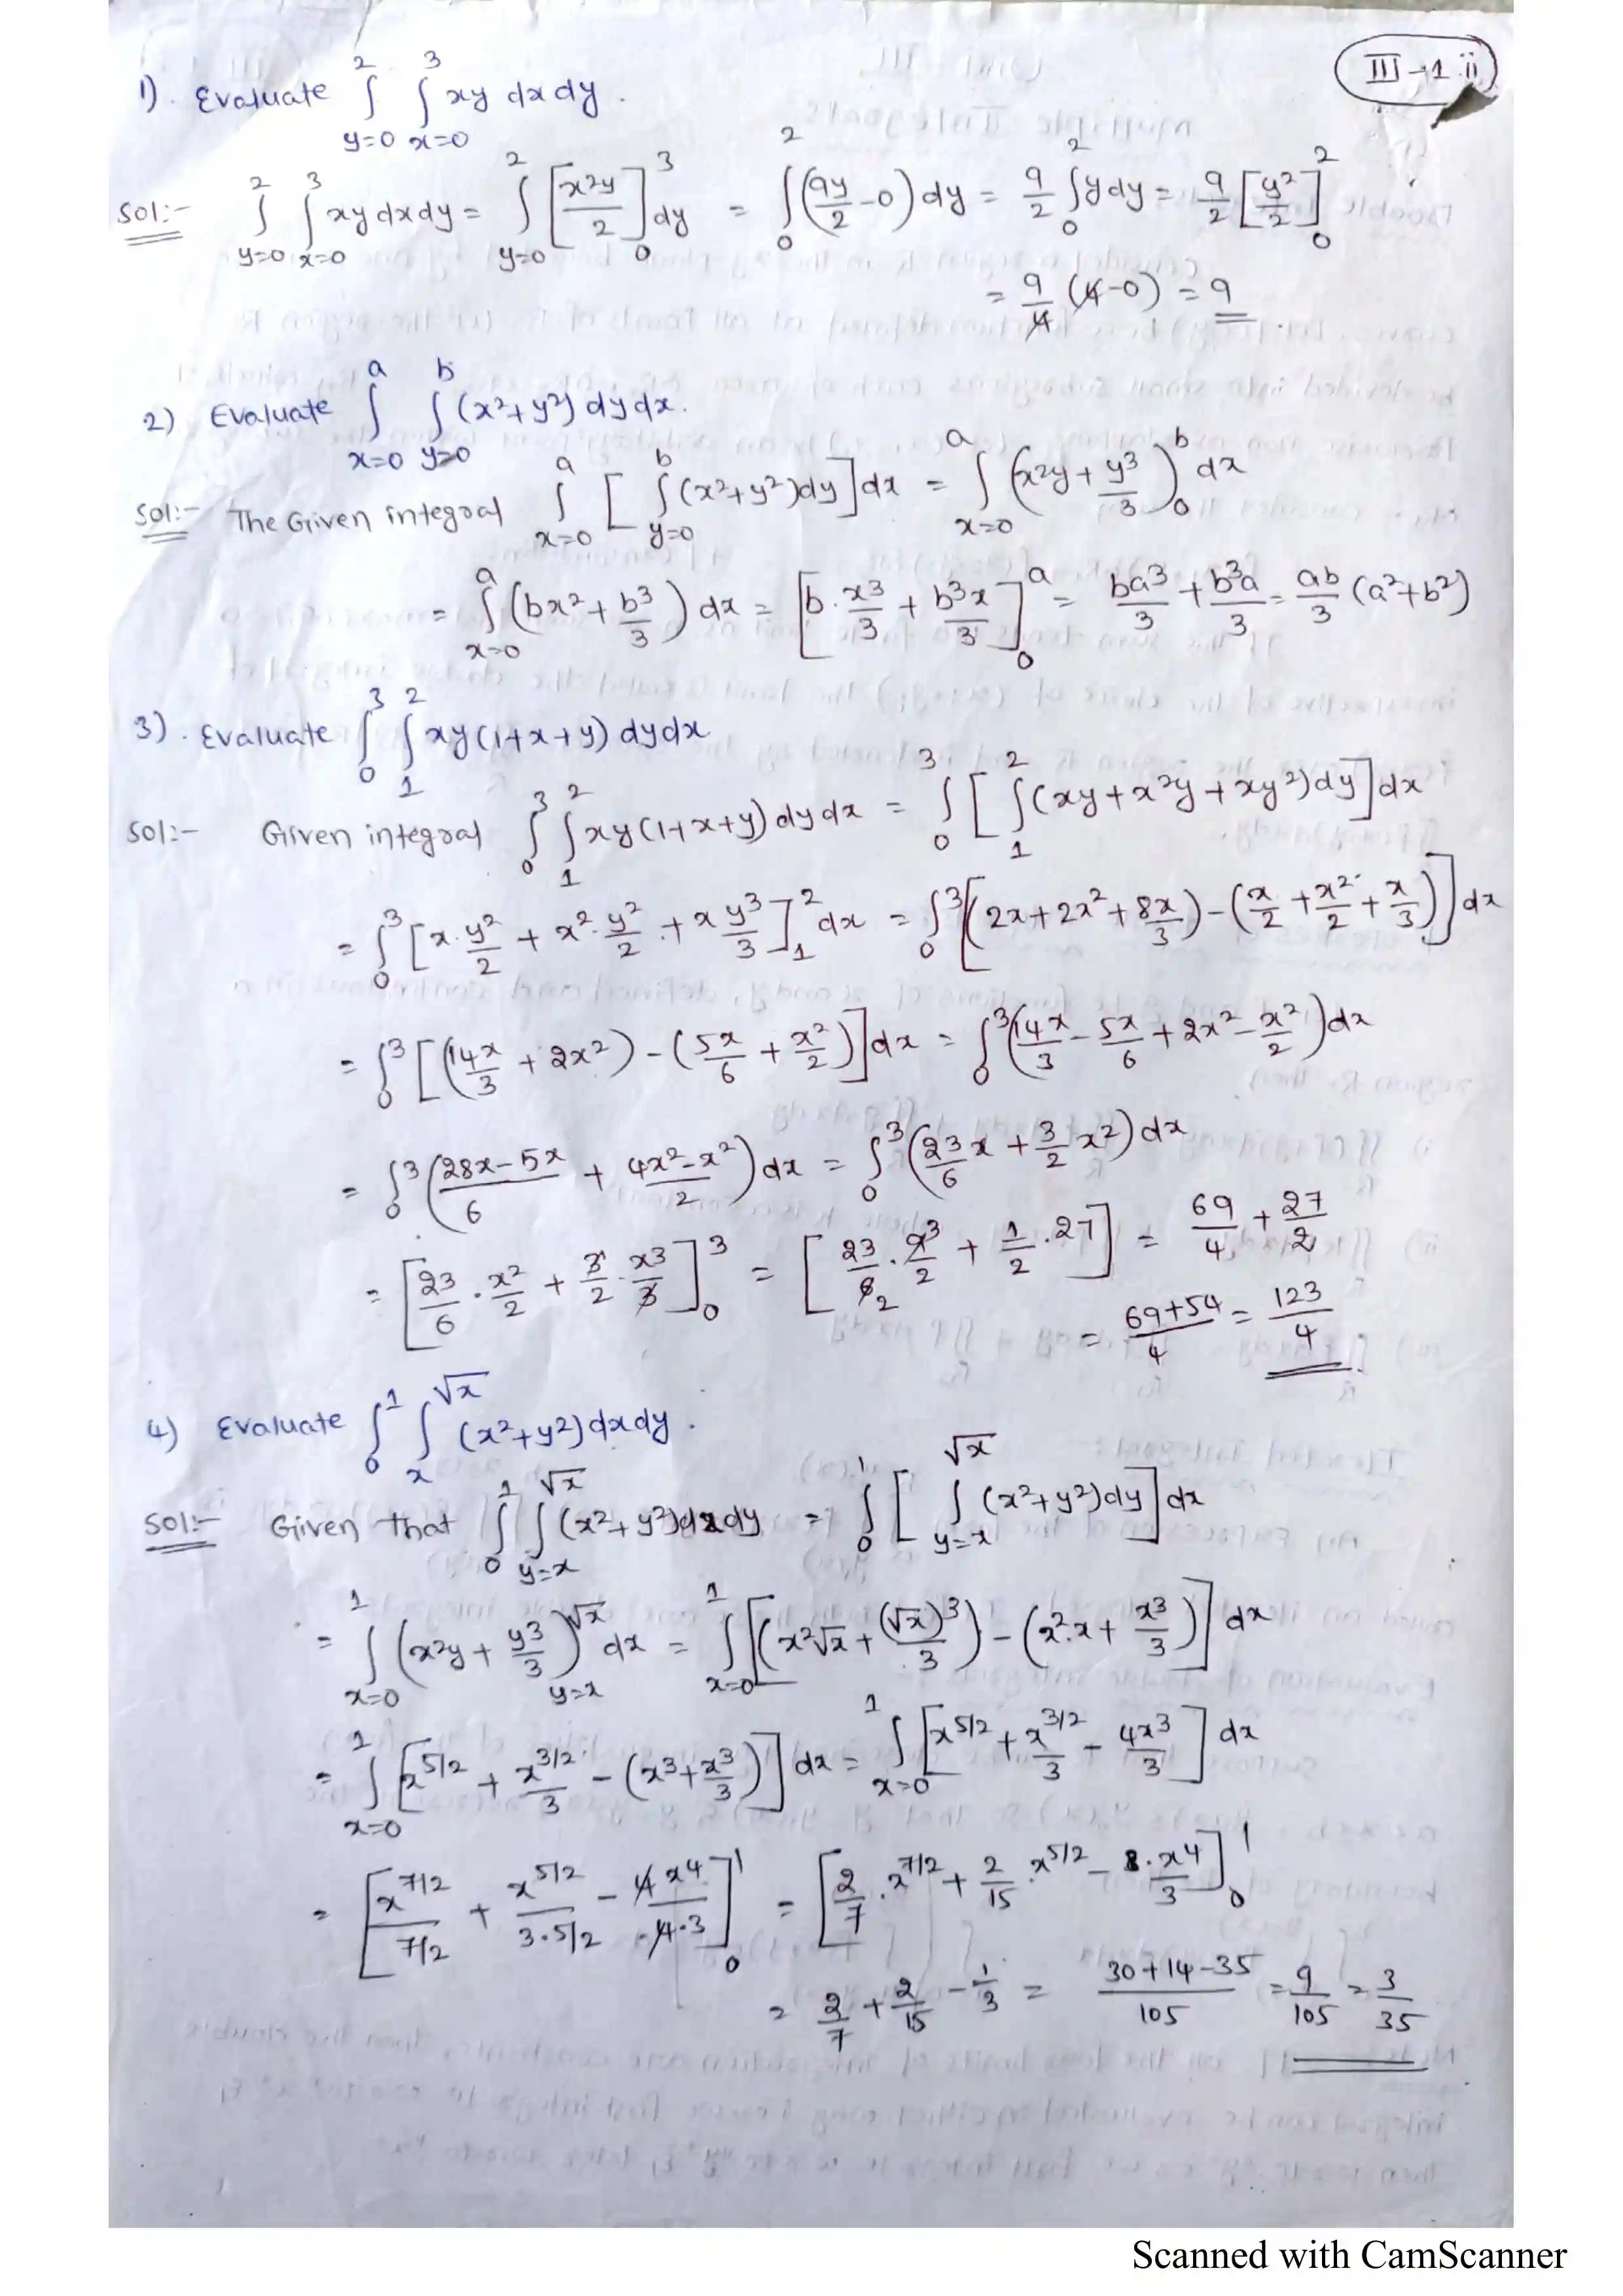 III-1.ii
1). Evaluate ∫_{y=0}^{2} ∫_{x=0}^{3} xy dx dy.
Sol:- ∫_{y=0}^{2} ∫_{x=0}^{3} xy dx dy = ∫_{y=0}^{2} [x²y/2]_0^3 dy = ∫_0^2 (9y/2 - 0) dy = 9/2 ∫_0^2 y dy = 9/2 [y²/2]_0^2
= 9/4 (4-0) = 9
2) Evaluate ∫_{x=0}^{a} ∫_{y=0}^{b} (x²+y²) dy dx.
Sol:- The Given integral ∫_{x=0}^{a} [∫_{y=0}^{b} (x²+y²) dy] dx = ∫_{x=0}^{a} (x²y + y³/3)_0^b dx
= ∫_{x=0}^{a} (bx² + b³/3) dx = [b·x³/3 + b³x/3]_0^a = ba³/3 + b³a/3 = ab/3 (a²+b²)
3). Evaluate ∫_0^3 ∫_1^2 xy(1+x+y) dy dx
Sol:- Given integral ∫_0^3 ∫_1^2 xy(1+x+y) dy dx = ∫_0^3 [∫_1^2 (xy+x²y+xy²) dy] dx
= ∫_0^3 [x·y²/2 + x²·y²/2 + x y³/3]_1^2 dx = ∫_0^3 [(2x+2x²+8x/3) - (x/2 + x²/2 + x/3)] dx
= ∫_0^3 [(14x/3 + 2x²) - (5x/6 + x²/2)] dx = ∫_0^3 (14x/3 - 5x/6 + 2x² - x²/2) dx
= ∫_0^3 (28x-5x/6 + 4x²-x²/2) dx = ∫_0^3 (23/6 x + 3/2 x²) dx
= [23/6 · x²/2 + 3/2 · x³/3]_0^3 = [23/6_2 · 9^3/2 + 1/2 · 27] = 69/4 + 27/2
= 69+54/4 = 123/4
4) Evaluate ∫_0^1 ∫_x^{√x} (x²+y²) dx dy.
Sol:- Given that ∫_0^1 ∫_{y=x}^{√x} (x²+y²) dx dy = ∫_0^1 [∫_{y=x}^{√x} (x²+y²) dy] dx
= ∫_{x=0}^{1} (x²y + y³/3)_{y=x}^{√x} dx = ∫_{x=0}^{1} [(x²√x + (√x)³/3) - (x²·x + x³/3)] dx
= ∫_{x=0}^{1} [x^{5/2} + x^{3/2}/3 - (x³+x³/3)] dx = ∫_{x=0}^{1} [x^{5/2} + x^{3/2}/3 - 4x³/3] dx
= [x^{7/2}/7/2 + x^{5/2}/3·5/2 - 4x⁴/4·3]_0^1 = [2/7 · x^{7/2} + 2/15 · x^{5/2} - · x⁴/3]_0^1
= 2/7 + 2/15 - 1/3 = 30+14-35/105 = 9/105 = 3/35
Scanned with CamScanner